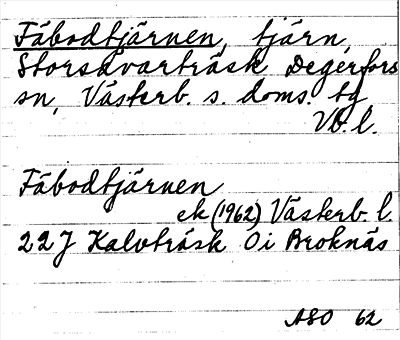 Fäbodtjärnen, tjärn,
Storsävarträsk Degerfors
sn, Västerb. s. doms. tg
Vb. l.
Fäbodtjärnen
ek (1962) Västerb. l.
22J Kalvträsk 0i Broknäs
ASO 62